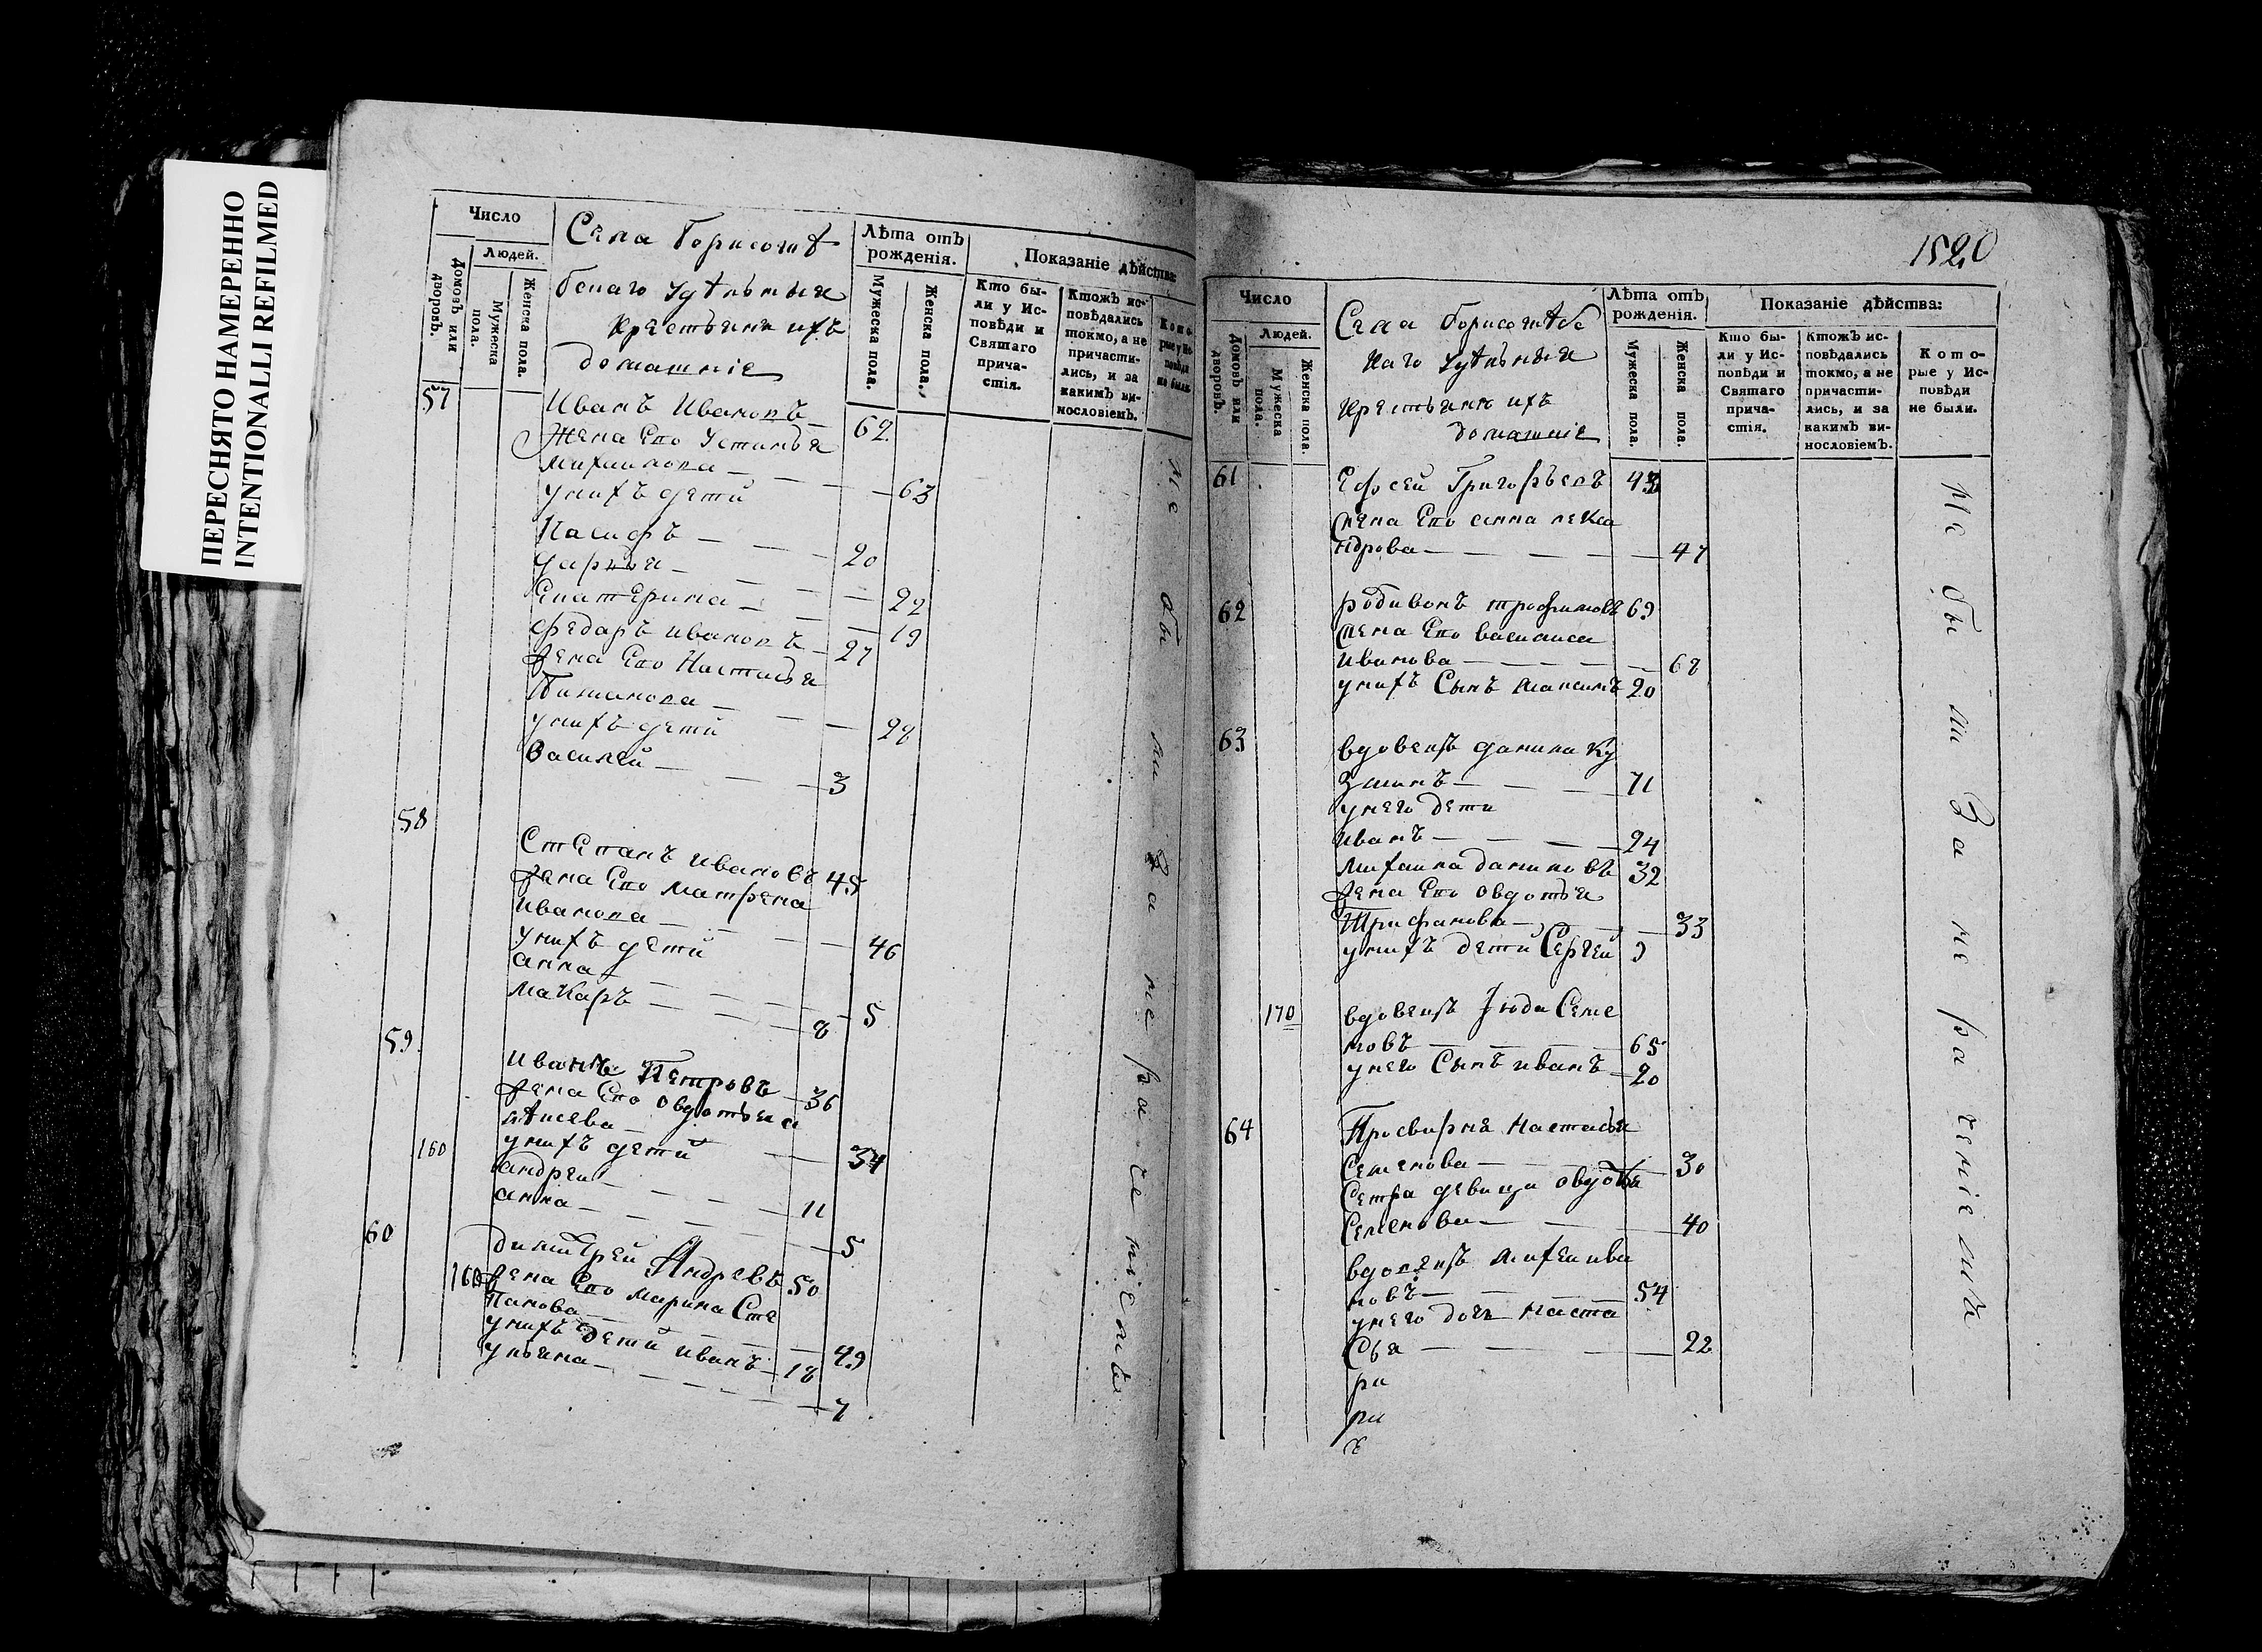 ПЕРЕСНЯТО НАМЕРЕННО
INTENTIONALLI REFILMED
Число
Людей.
Домовъ или дворовъ.
Мужеска пола.
Женска пола.
Села Борисоглѣ
бскаго удѣльныя
крестьяня ихъ
домашніе
Лѣта отъ рожденія.
Мужеска пола.
Женска пола.
Показаніе дѣйства:
Кто бы-
ли у Ис-
повѣди и
Святаго
прича-
стія.
Ктожъ ис-
повѣдались
токмо, а не
причасти-
лись, и за
какимъ ви-
нословіемъ.
Кото-
рые у Ис-
повѣди
не были.
57
Иванъ Ивановъ 62
Жена Его Устинья
Михаилова 63
у нихъ дети
Иасифъ 20
дарья 22
Екатерина 19
Федаръ ивановъ 27
жена Его Настасья
у нихъ дети 28
Василей 3
58 Степанъ ивановъ 45
жена Его матрена
Иванова 46
у нихъ дети
анна 5
макаръ 8
59. иванъ Петровъ 36
жена Его овдотья
у нихъ дети 34
160 андреи 11
анна 5
60 димитрей Андревъ 50
жена Его марина Сте
панова 49
у нихъ дети иванъ 18
ульяна 7
не бы ли За не ра че ніемъ
1520
Число
Людей.
Домовъ или дворовъ.
Мужеска пола.
Женска пола.
Села Борисоглѣбс
каго удѣльныя
крестьяню ихъ
домашніе
Лѣта отъ рожденія.
Мужеска пола.
Женска пола.
Показаніе дѣйства:
Кто бы-
ли у Ис-
повѣди и
Святаго
прича-
стія.
Ктожъ ис-
повѣдались
токмо, а не
причасти-
лись, и за
какимъ ви-
нословіемъ.
Кото-
рые у Ис-
повѣди
не были.
61 Ефсей Григорьевъ
жена Его анна лекса
ндрова 47
62 родивонъ трофимовъ 69
жена Его василиса
иванова 68
у нихъ Сынъ максимъ 20
63 вдовецъ данила Ку
Зминъ 71
у него дети
иванъ 24
михаила даниловъ 32
жена Его овдотья
Трифанова 33
у нихъ дети Сергеи 9
170 вдовецъ Июда Семе
новъ 65
у него Сынъ иванъ 20
64 Просвирня настасья
Семенова 30
Сестра девица овдотья
Семенова 40
вдовецъ михеи ива
новъ 54
у него дочь наста
Сья 22
ри
ри
х
не бы ли За не ра ченіемъ